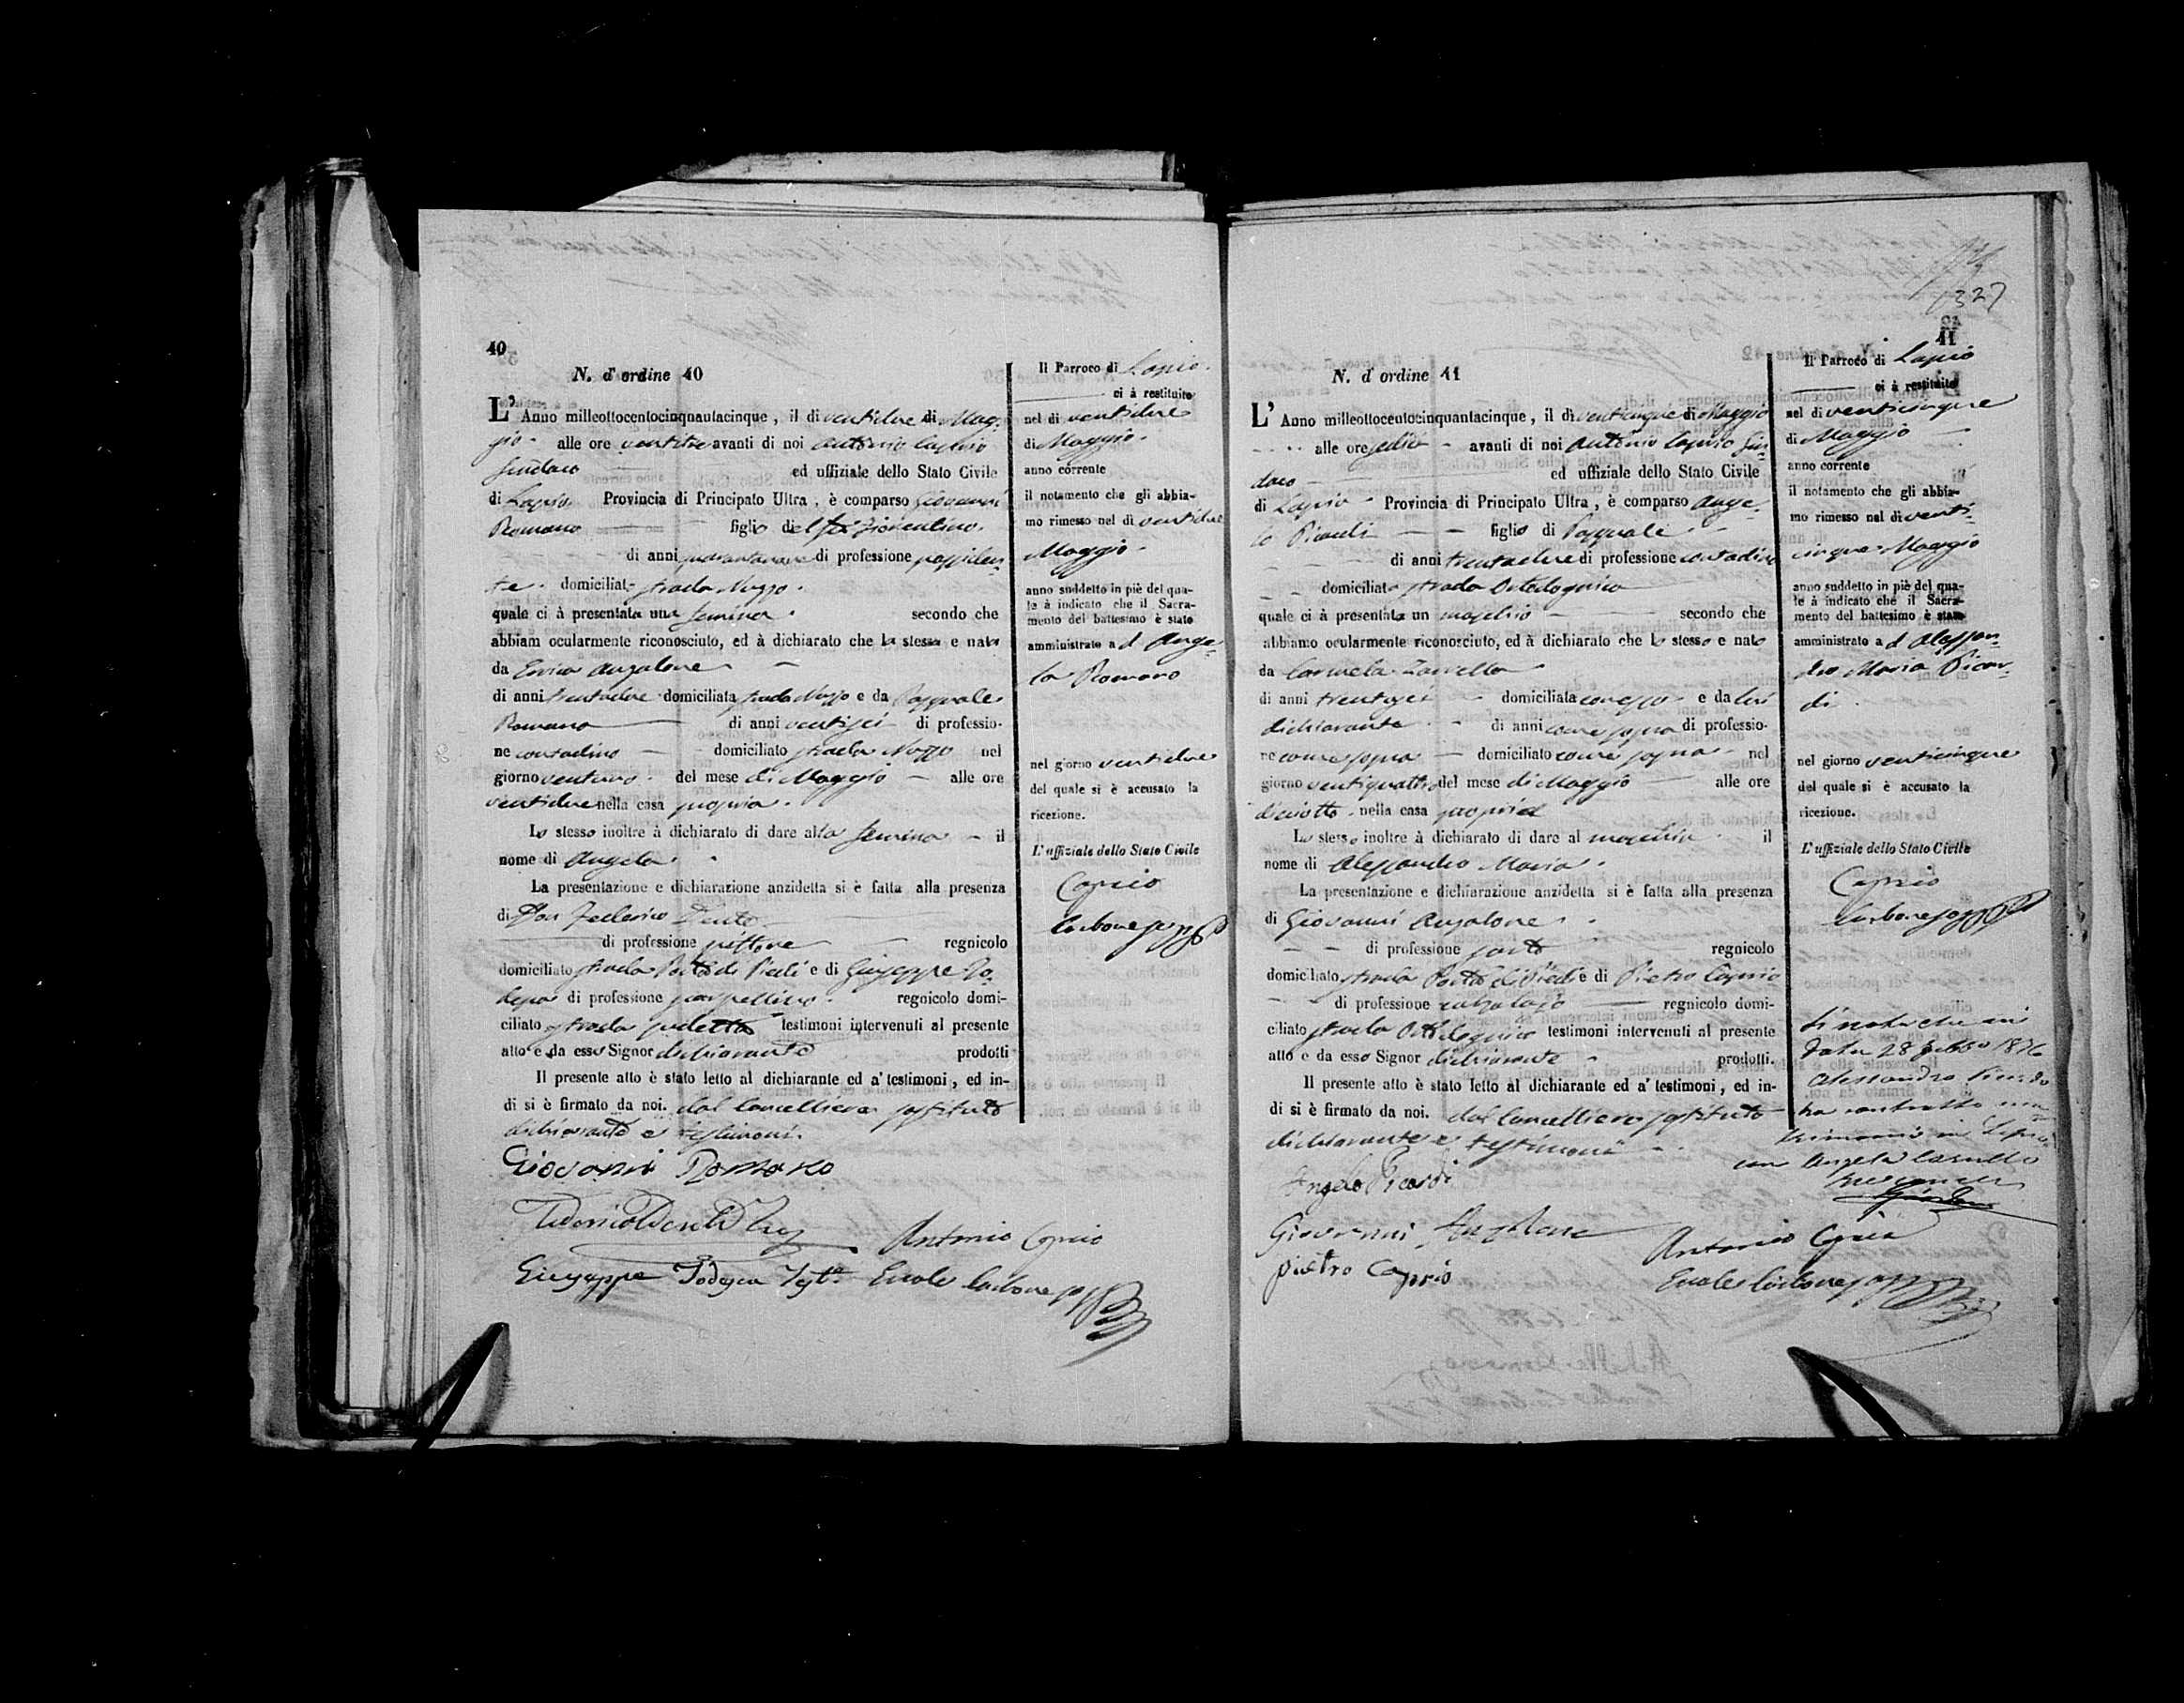 40
N. d'ordine 40
L'Anno milleottocentocinquantacinque, il di ventidue di Mag-
gio alle ore ventitre avanti di noi Antonio Caprio
Sindaco ed uffiziale dello Stato Civile
di Lapio Provincia di Principato Ultra, è comparso Giovanni
Romano figlio del fu Fiorentino
di anni quarantanove di professione possiden-
te domiciliat strada Nuzzo
quale ci à presentata una femina secondo che
abbiam ocularmente riconosciuto, ed à dichiarato che la stessa e nata
da Enrica Anzalone
di anni trentadue domiciliata strada Nuzzo e da Pasquale
Romano di anni ventisei di professio-
ne contadino domiciliato strada Nuzzo nel
giorno ventuno del mese di Maggio alle ore
ventidue nella casa propria
Lo stesso inoltre à dichiarato di dare alla femina il
nome di Angela
La presentazione e dichiarazione anzidetta si è fatta alla presenza
di Don Federico
di professione pittore regnicolo
domiciliato strada Porta di Piedi e di Giuseppe To-
desca di professione scarpellino regnicolo domi-
ciliato strada testimoni intervenuti al presente
atto e da esso Signor dichiarante prodotti
Il presente atto è stato letto al dichiarante ed a' testimoni, ed in-
di si è firmato da noi, dal Cancelliere sostituto
dichiarante e testimoni.
Giovanni Romano
Antonio Caprio
Giuseppe Todesca Test.e Carbone
Il Parroco di Lapio
ci à restituito
nel di ventidue
di Maggio
anno corrente
il notamento che gli abbia-
mo rimesso nel di ventidue
Maggio
anno suddetto in piè del qua-
le à indicato che il Sacra-
mento del battesimo è stato
amministrato ad Ange-
la Romano
nel giorno ventidue
del quale si è accusato la
ricezione.
L'uffiziale dello Stato Civile
Caprio
Carbone
327
41
N. d'ordine 41
L'Anno milleottocentocinquantacinque, il di venticinque di Maggio
alle ore sedici avanti di noi Antonio Caprio Sin-
daco ed uffiziale dello Stato Civile
di Lapio Provincia di Principato Ultra, è comparso Ange-
lo Picardi figlio di Pasquale
di anni trentadue di professione contadino
domiciliato strada
quale ci à presentata un maschio secondo che
abbiamo ocularmente riconosciuto, ed à dichiarato che lo stesso e nato
da Carmela Zarrella
di anni trentasei domiciliata con esso e da lui
dichiarante di anni come sopra di professio-
ne come sopra domiciliato come sopra nel
giorno ventiquattro del mese di Maggio alle ore
diciotto nella casa propria
Lo stesso inoltre à dichiarato di dare al maschio il
nome di Alessandro Maria
La presentazione e dichiarazione anzidetta si è fatta alla presenza
di Giovanni Anzalone
di professione sarto regnicolo
domiciliato strada Porta di Piedi e di Pietro Caprio
di professione calzolajo regnicolo domi-
ciliato strada testimoni intervenuti al presente
atto e da esso Signor dichiarante prodotti.
Il presente atto è stato letto al dichiarante ed a' testimoni, ed in-
di si è firmato da noi, dal Cancelliere sostituto
dichiarante e testimoni
Angelo Picardi
Giovanni Anzalone
Antonio Caprio
pietro Caprio
Carbone
Il Parroco di Lapio
ci à restituito
nel di venticinque
di Maggio
anno corrente
il notamento che gli abbia-
mo rimesso nel di venti-
cinque Maggio
anno suddetto in piè del qua-
le à indicato che il Sacra-
mento del battesimo è stato
amministrato ad Alessan-
dro Maria Picar-
di
nel giorno venticinque
del quale si è accusato la
ricezione.
L'uffiziale dello Stato Civile
Caprio
Carbone
Si nota che in
data 28 1876
Alessandro Picardo
ha contratto ma-
trimonio in Lapio
con Angela